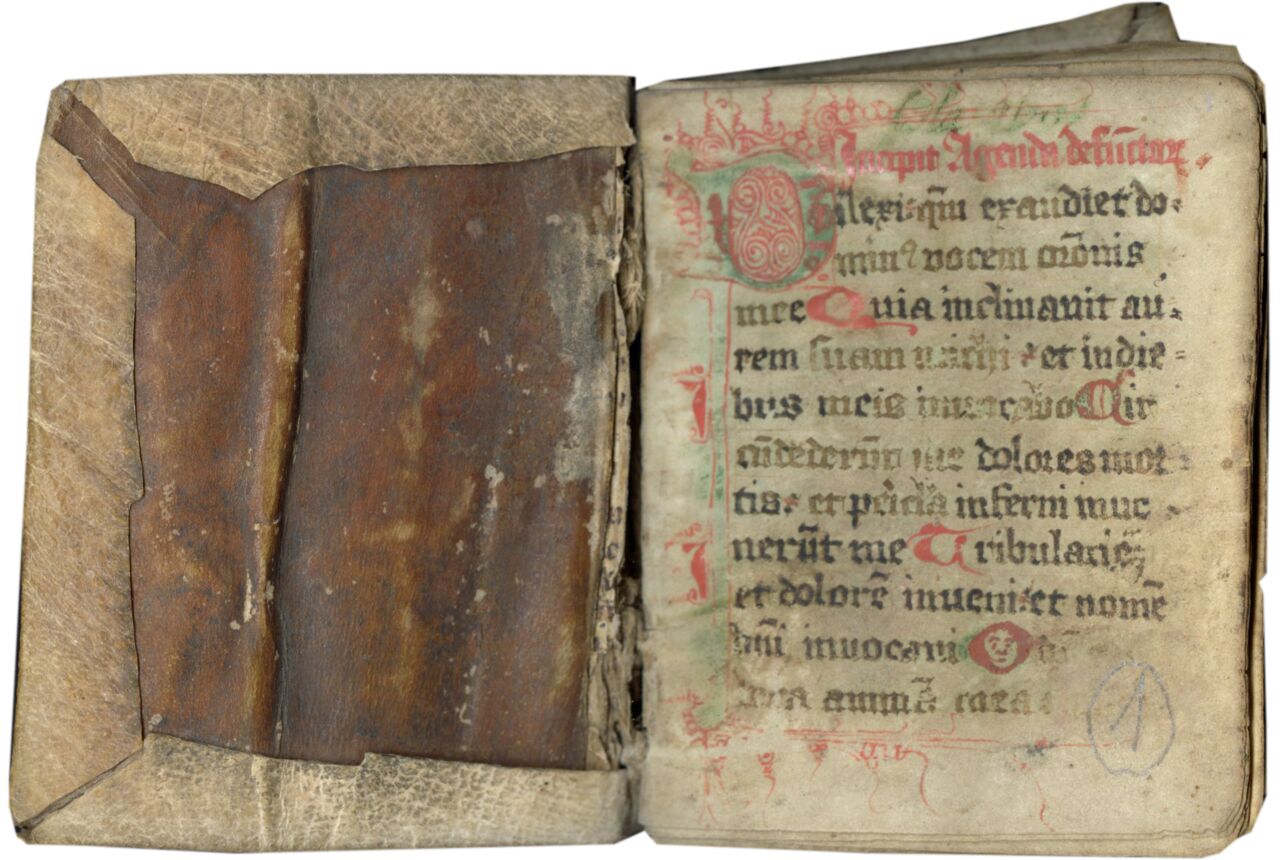 Incipit Agenda defūctorꝝ
Dilexi qm̄ exaudiet do-
minꝰ vocem or̄onis
mee Quia inclinauit au-
rem suam michi et in die-
bus meis inuocabo Cir
cūdederūt me dolores mor
tis et pericl̄a inferni inue
nerūt me Tribulacio͞ez
et dolorē inueni et nomē
dn̄i inuocaui
animā
1